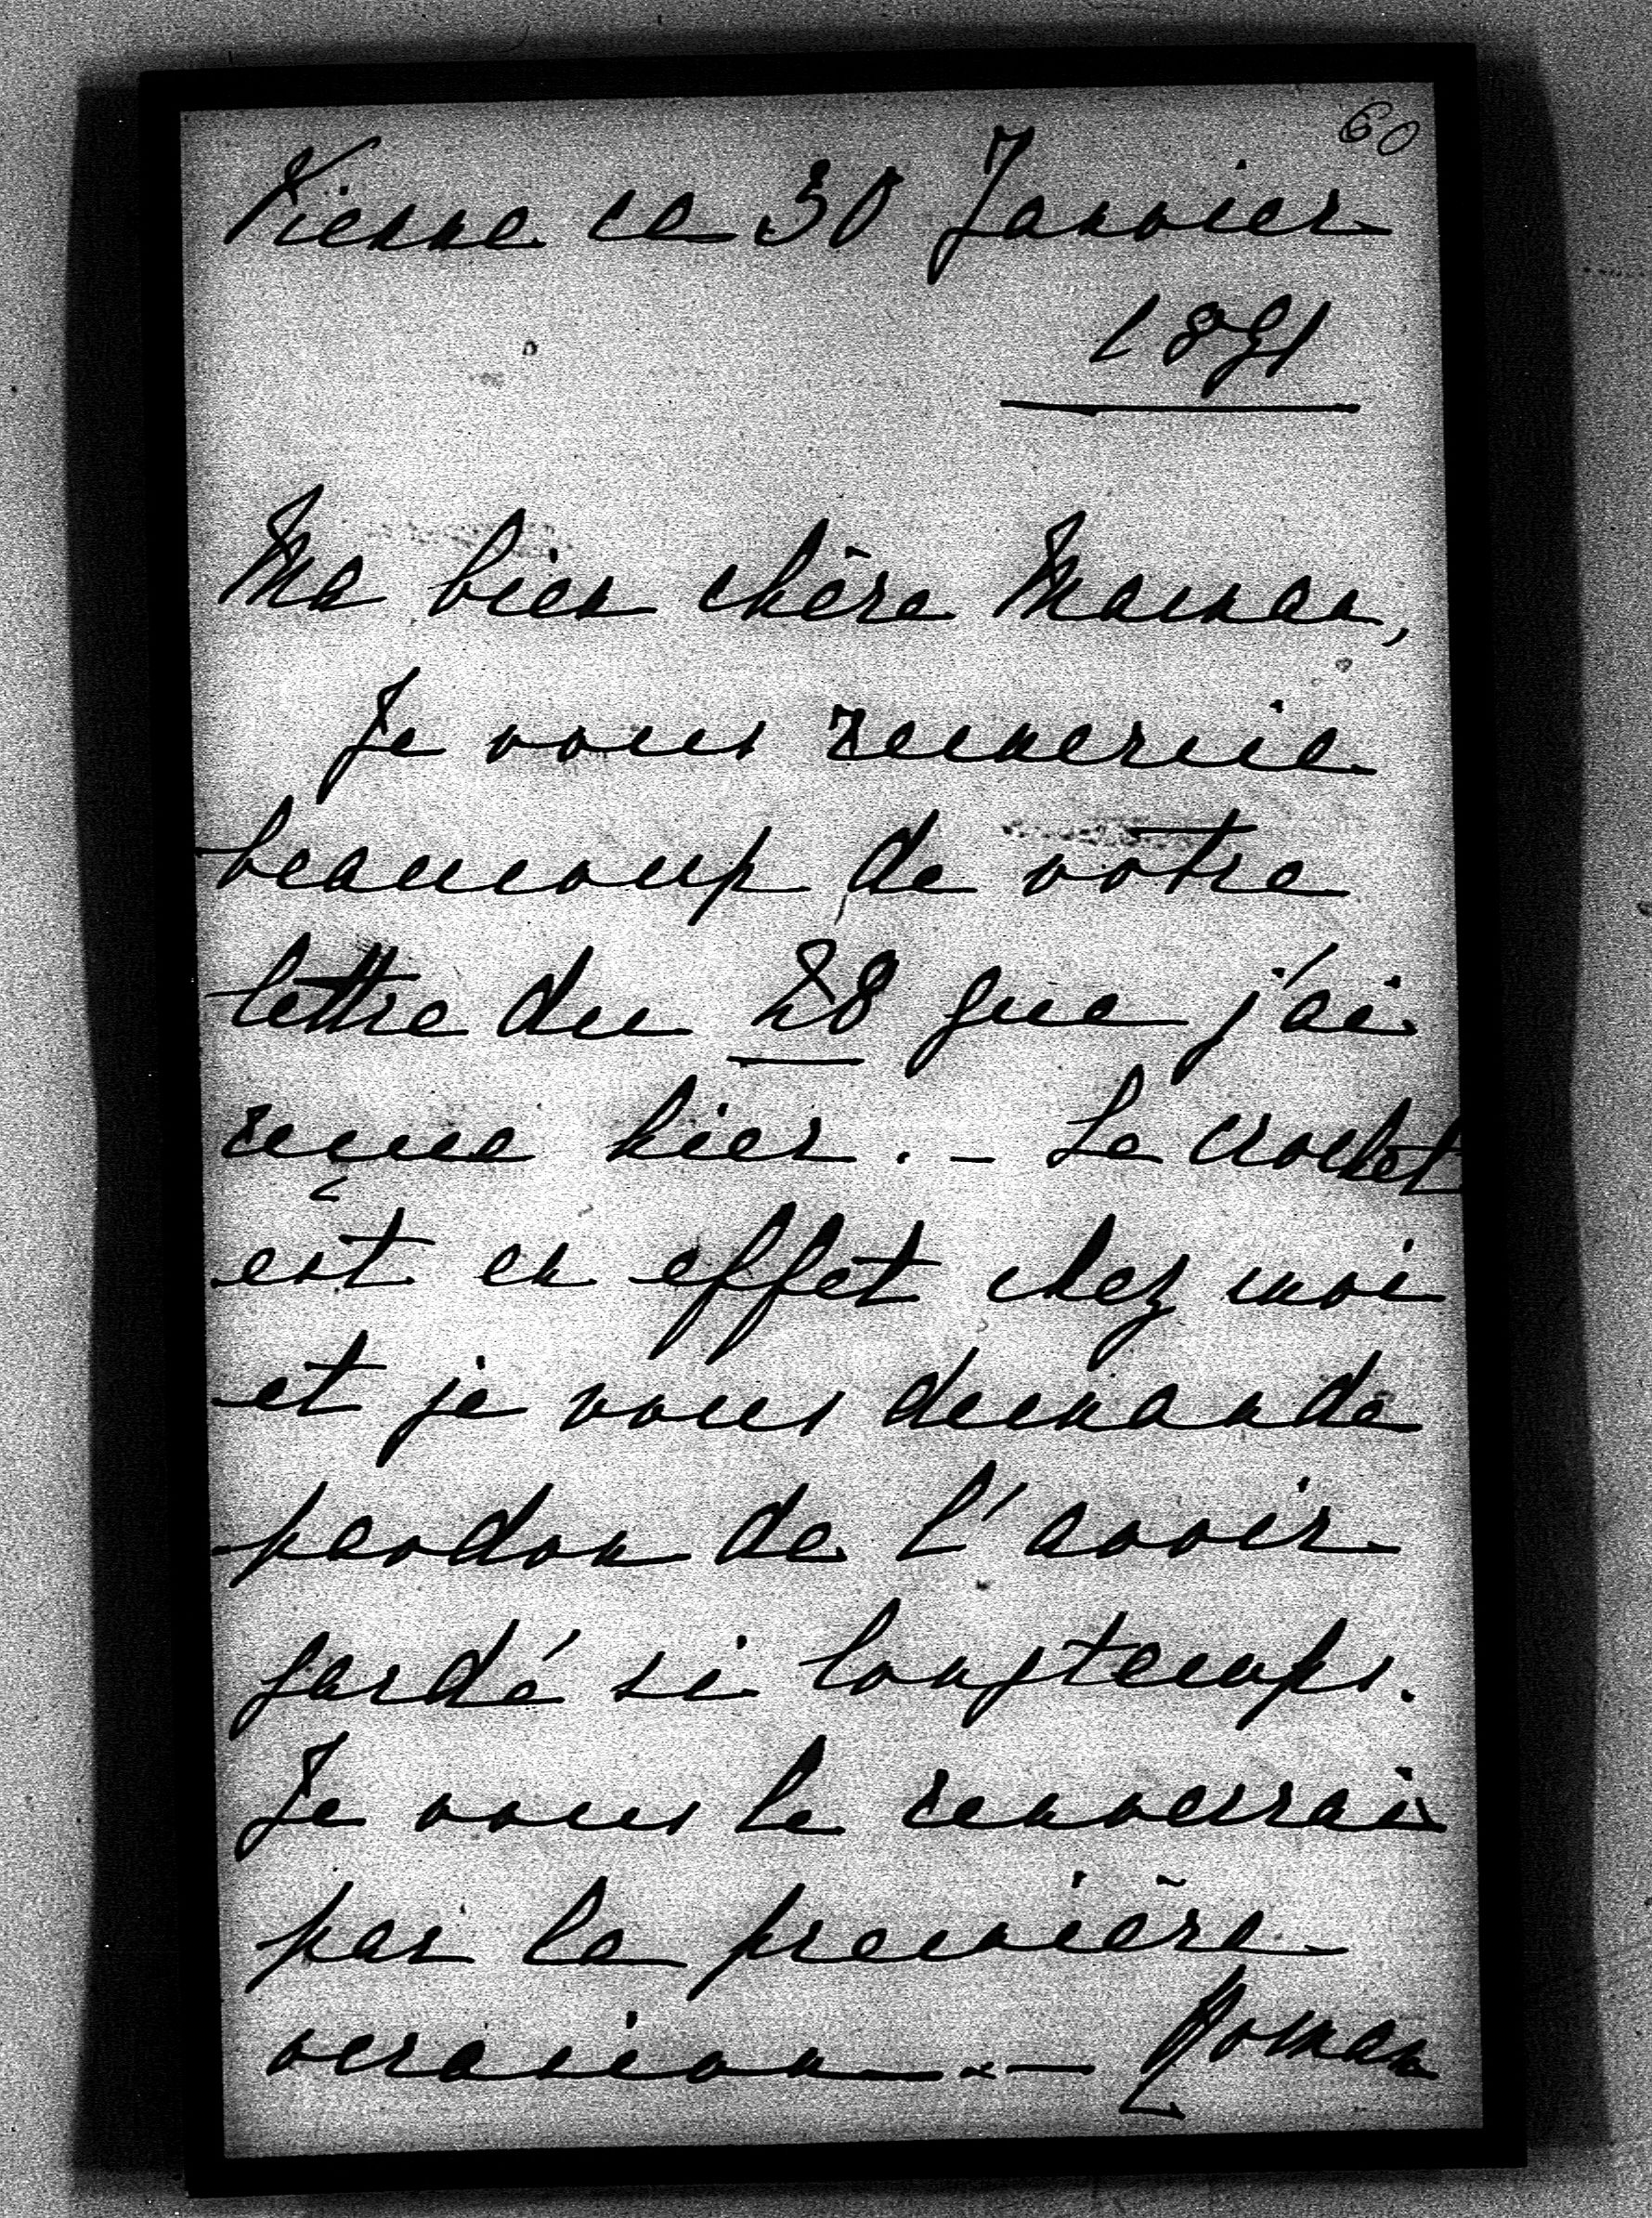 60
Vienne ce 30 Janvier
1891
Ma bien chère Maman,
Je vous remercie
beaucoup de votre
lettre du 28 que j'ai
reçue hier. - Le crochet
est en effet chez moi
et je vous demande
pardon de l'avoir
gardé si longtemps.
Je vous le renverrai
par la première
occasion. - Roman